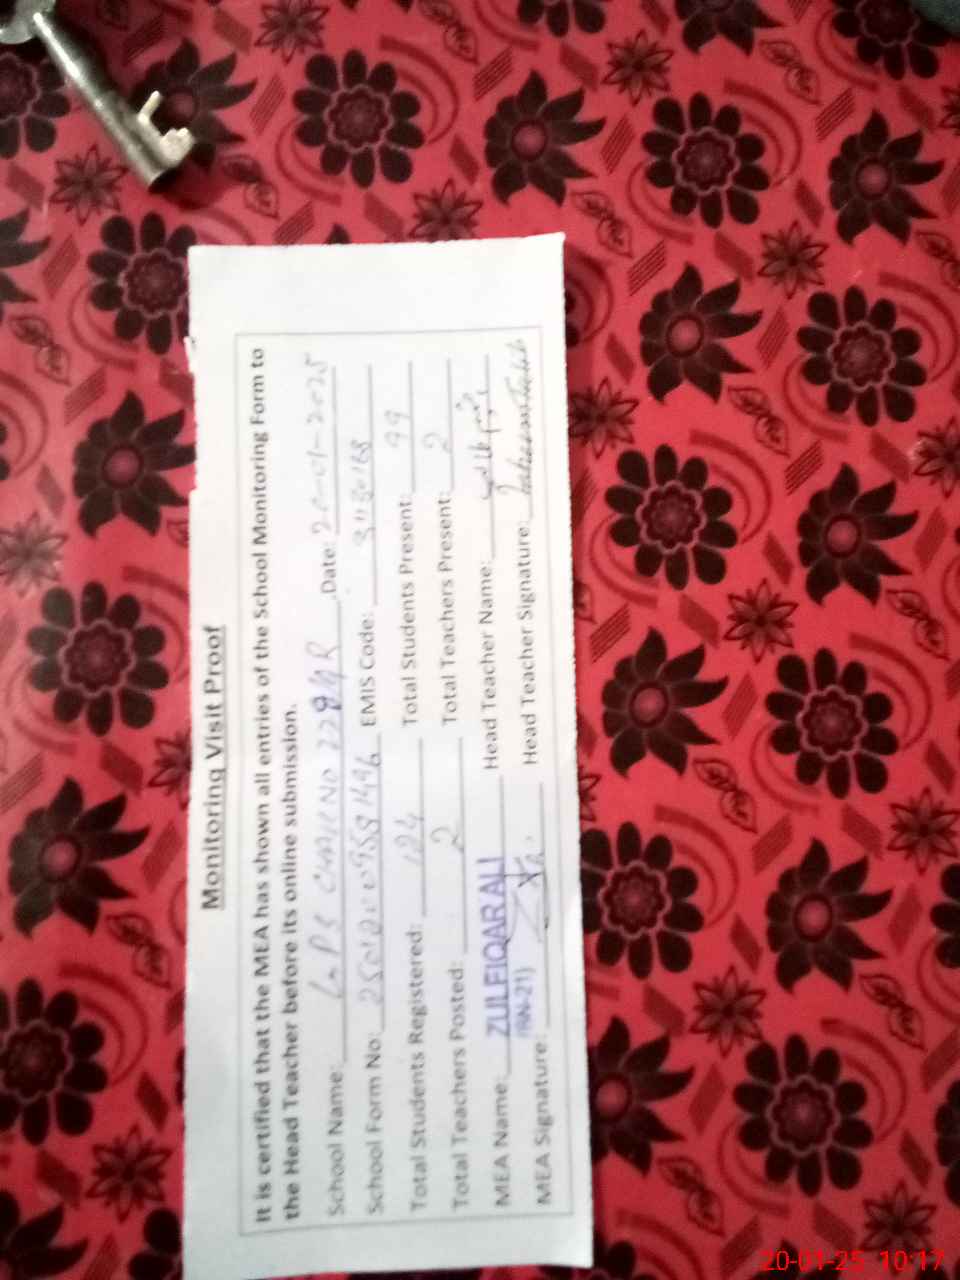 Monitoring Visit Proof
It is certified that the MEA has shown all entries of the School Monitoring Form to
the Head Teacher before its online submission.
School Name: GPS CHAK NO 228 9R Date: 20-01-2025
School Form No: EMIS Code: 31130168
Total Students Registered: 124 Total Students Present: 99
Total Teachers Posted: 2 Total Teachers Present: 2
MEA Name: ZULFIQAR ALI Head Teacher Name:
MEA Signature: Head Teacher Signature:
20-01-25 10:17